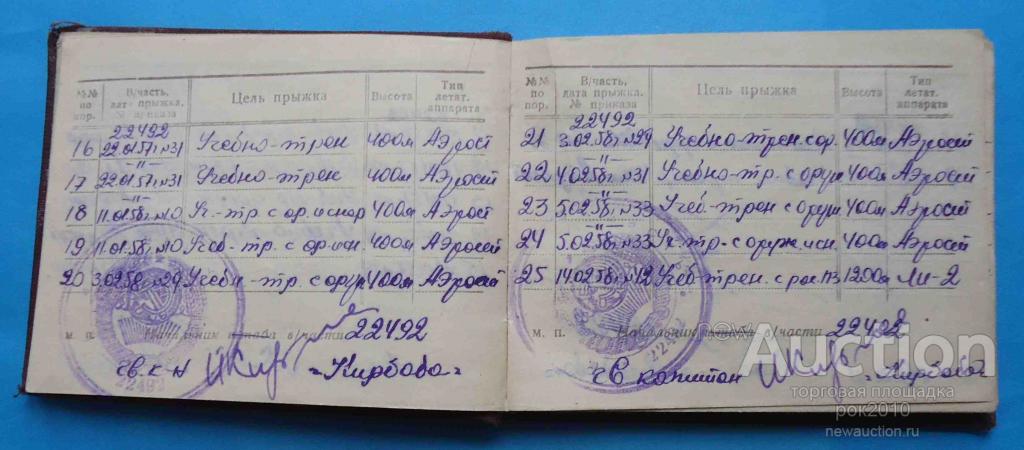 №№ по пор.
В/часть, дата прыжка, № приказа
Цель прыжка
Высота
Тип летат. аппарата
22492
16 22.01.57г №31 Учебно-трен 400м Аэрост
-"-
17 22.01.57г №31 Учебно-трен 400м Аэрост
-"-
18 11.01.58г №10 Уч.-тр. с ор. иснар 400м Аэрост
19 11.01.58г №10 Учеб.-тр. с ор. исн. 400м Аэрост
20 3.02.58г №29 Учебн.-тр. с оруж 400м Аэрост
м. п. Начальник в/части 22492
22492
"Кирбоба"
№№ по пор.
В/часть, дата прыжка, № приказа
Цель прыжка
Высота
Тип летат. аппарата
22492
21 3.02.58г №29 Учебно-трен. с ор. 400м Аэрост
-"-
22 4.02.58г №31 Учебно-тр. с оруж 400м Аэрост
-"-
23 5.02.58г №33 Учеб.-трен с оруж 400м Аэрост
-"-
24 5.02.58г №33 Уч.-тр. с оруж. исн. 400м Аэрост
25 14.02.58г №42 Учеб-трен. с 1200м Ли-2
м. п. Начальник в/части 22492
22492
г/в капитан
Auction
торговая площадка
рок2010
newauction.ru